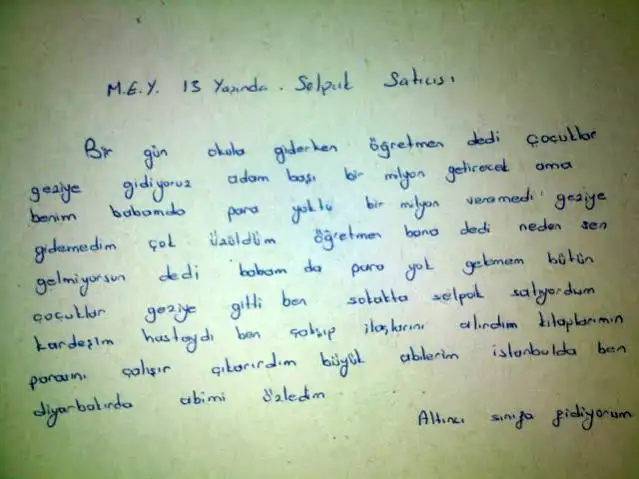 M.E.Y. 13 Yaşında. Selpak Satıcısı
Bir gün okula giderken öğretmen dedi çocuklar
geziye gidiyoruz adam başı bir milyon getirecek ama
benim babamda para yoktu bir milyon veremedi geziye
gidemedim çok üzüldüm öğretmen bana dedi neden sen
gelmiyorsun dedi babam da para yok gelemem bütün
çocuklar geziye gitti ben sokakta selpak satıyordum
kardeşim hastaydı ben çalışıp ilaçlarını alırdım kitaplarımın
parasını çalışır çıkarırdım büyük abilerim istanbulda ben
diyarbakırda abimi özledim
Altıncı sınıfa gidiyorum